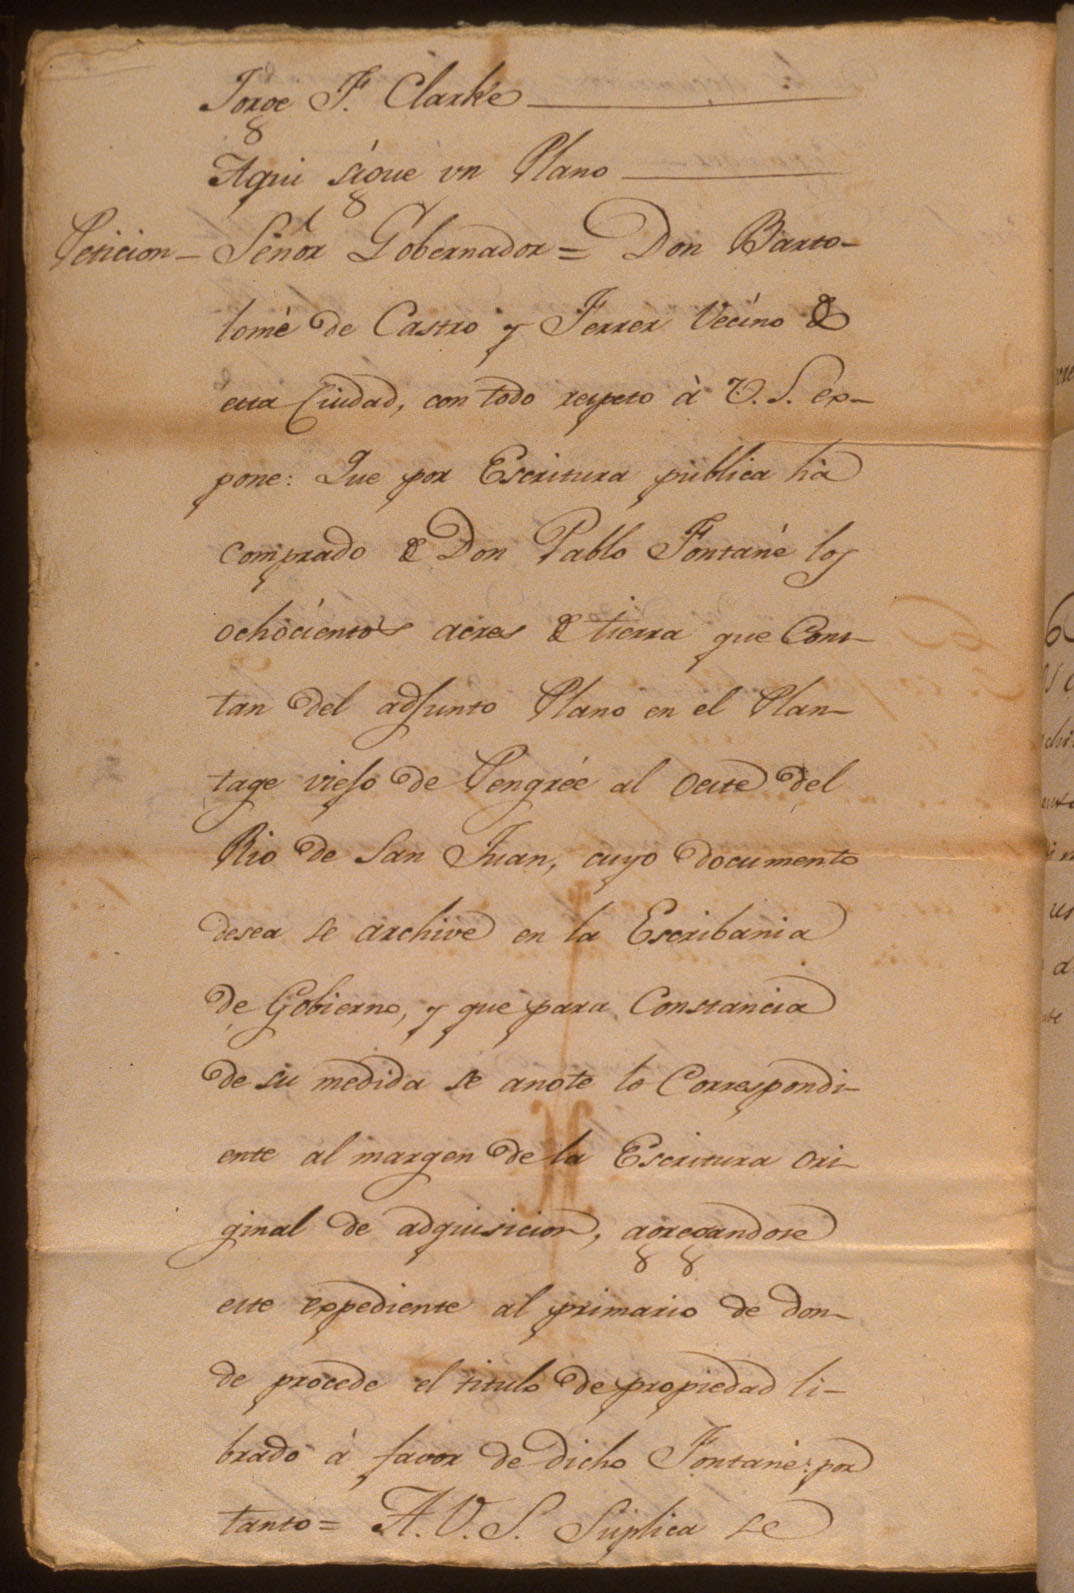 Jorge F. Clarke
Aqui sigue un Plano
Peticion - Señor Gobernador = Don Barto-
lomè de Castro y Ferrer Vecino de
esta Ciudad, con todo respeto à V. S. ex-
pone: Que por Escritura publica hà
comprado de Don Pablo Fontané los
ochocientos acres de tierra que Cons-
tan del adjunto Plano en el Plan-
tage viejo de Pengrée al oeste del
Rio de San Juan, cuyo documento
desea se archive en la Escribania
de Gobierno, y que para Constancia
de su medida se anote lo Correspondi-
ente al margen de la Escritura ori-
ginal de adquisicion, agregandose
este expediente al primario de don-
de procede el titulo de propiedad li-
brado à favor de dicho Fontané: por
tanto = A. V. S. Suplica se